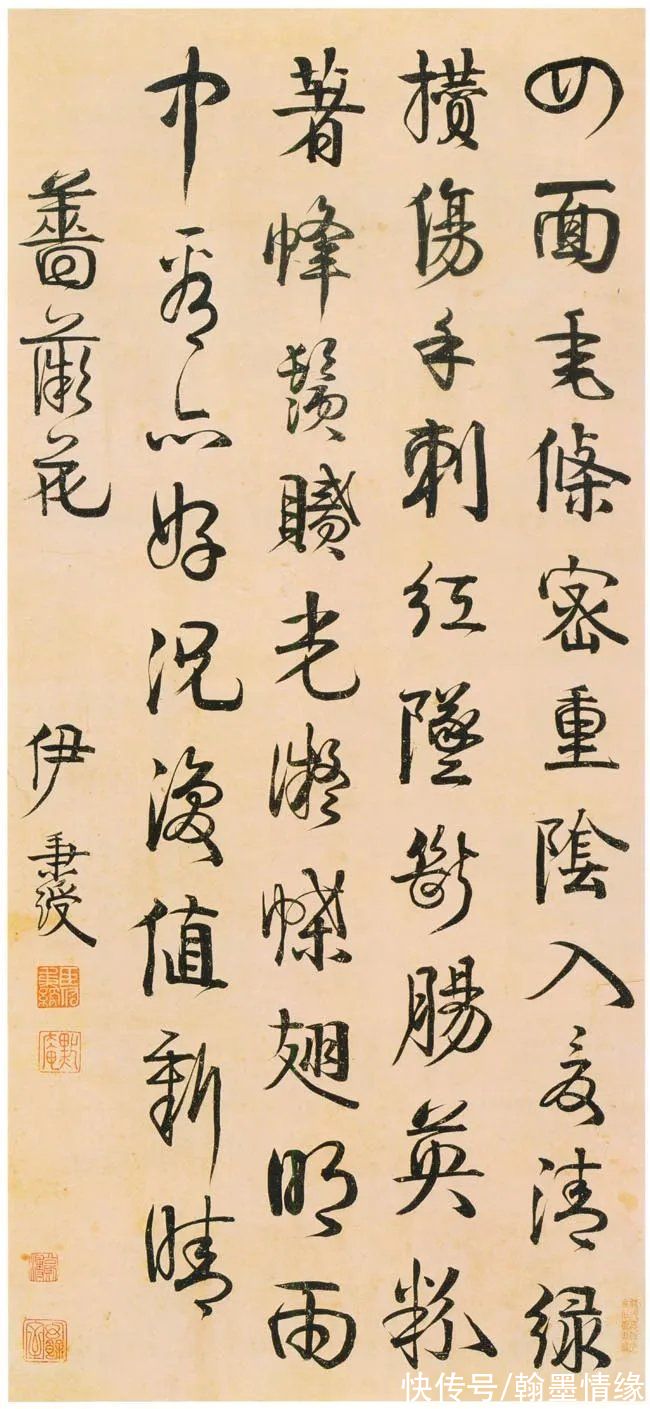 四面垂條密重陰入夏清綠
攢傷手刺紅墜斷腸英粉
著蜂鬚膩光凝蝶翅明雨
中看亦好況復值新晴
薔薇花
伊秉綬
快传号/翰墨情缘